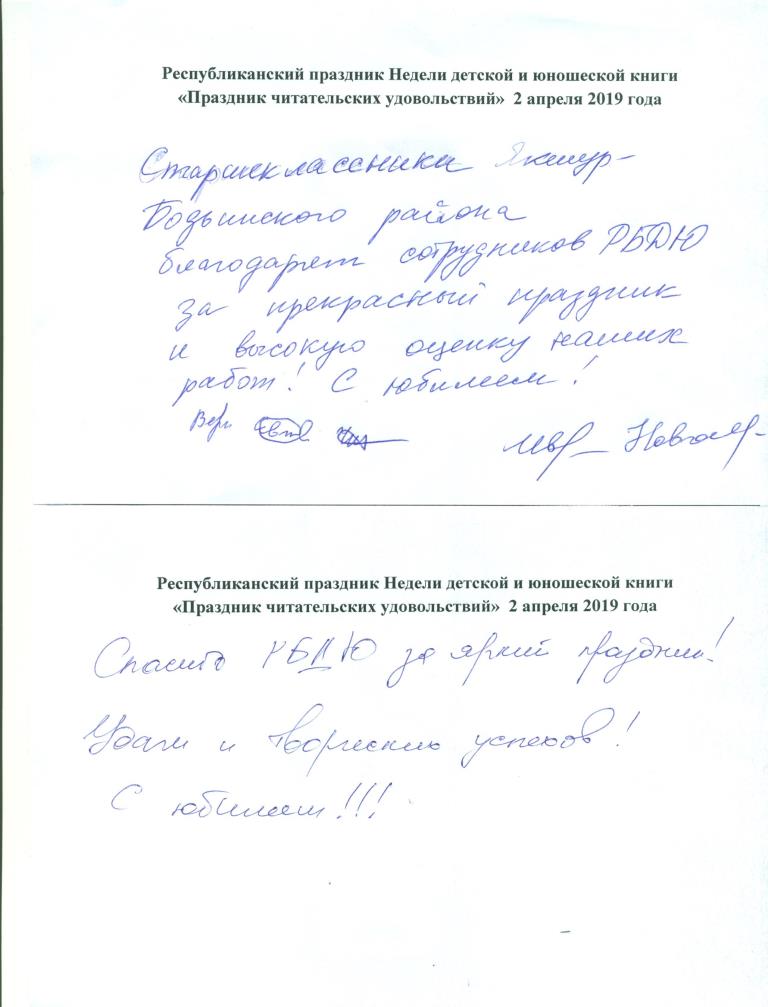 Республиканский праздник Недели детской и юношеской книги
«Праздник читательских удовольствий» 2 апреля 2019 года
Старшеклассники Якшур-
Бодьинского района
благодарят сотрудников РБДЮ
за прекрасный праздник
и высокую оценку наших
работ! С юбилеем!
Республиканский праздник Недели детской и юношеской книги
«Праздник читательских удовольствий» 2 апреля 2019 года
Спасибо РБДЮ за яркий праздник!
Удачи и творческих успехов!
С юбилеем!!!